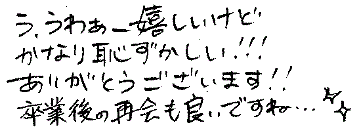 う、うわぁー嬉しいけど
かなり恥ずかしい!!!
ありがとうございます!!
卒業後の再会も良いですね…☆☆